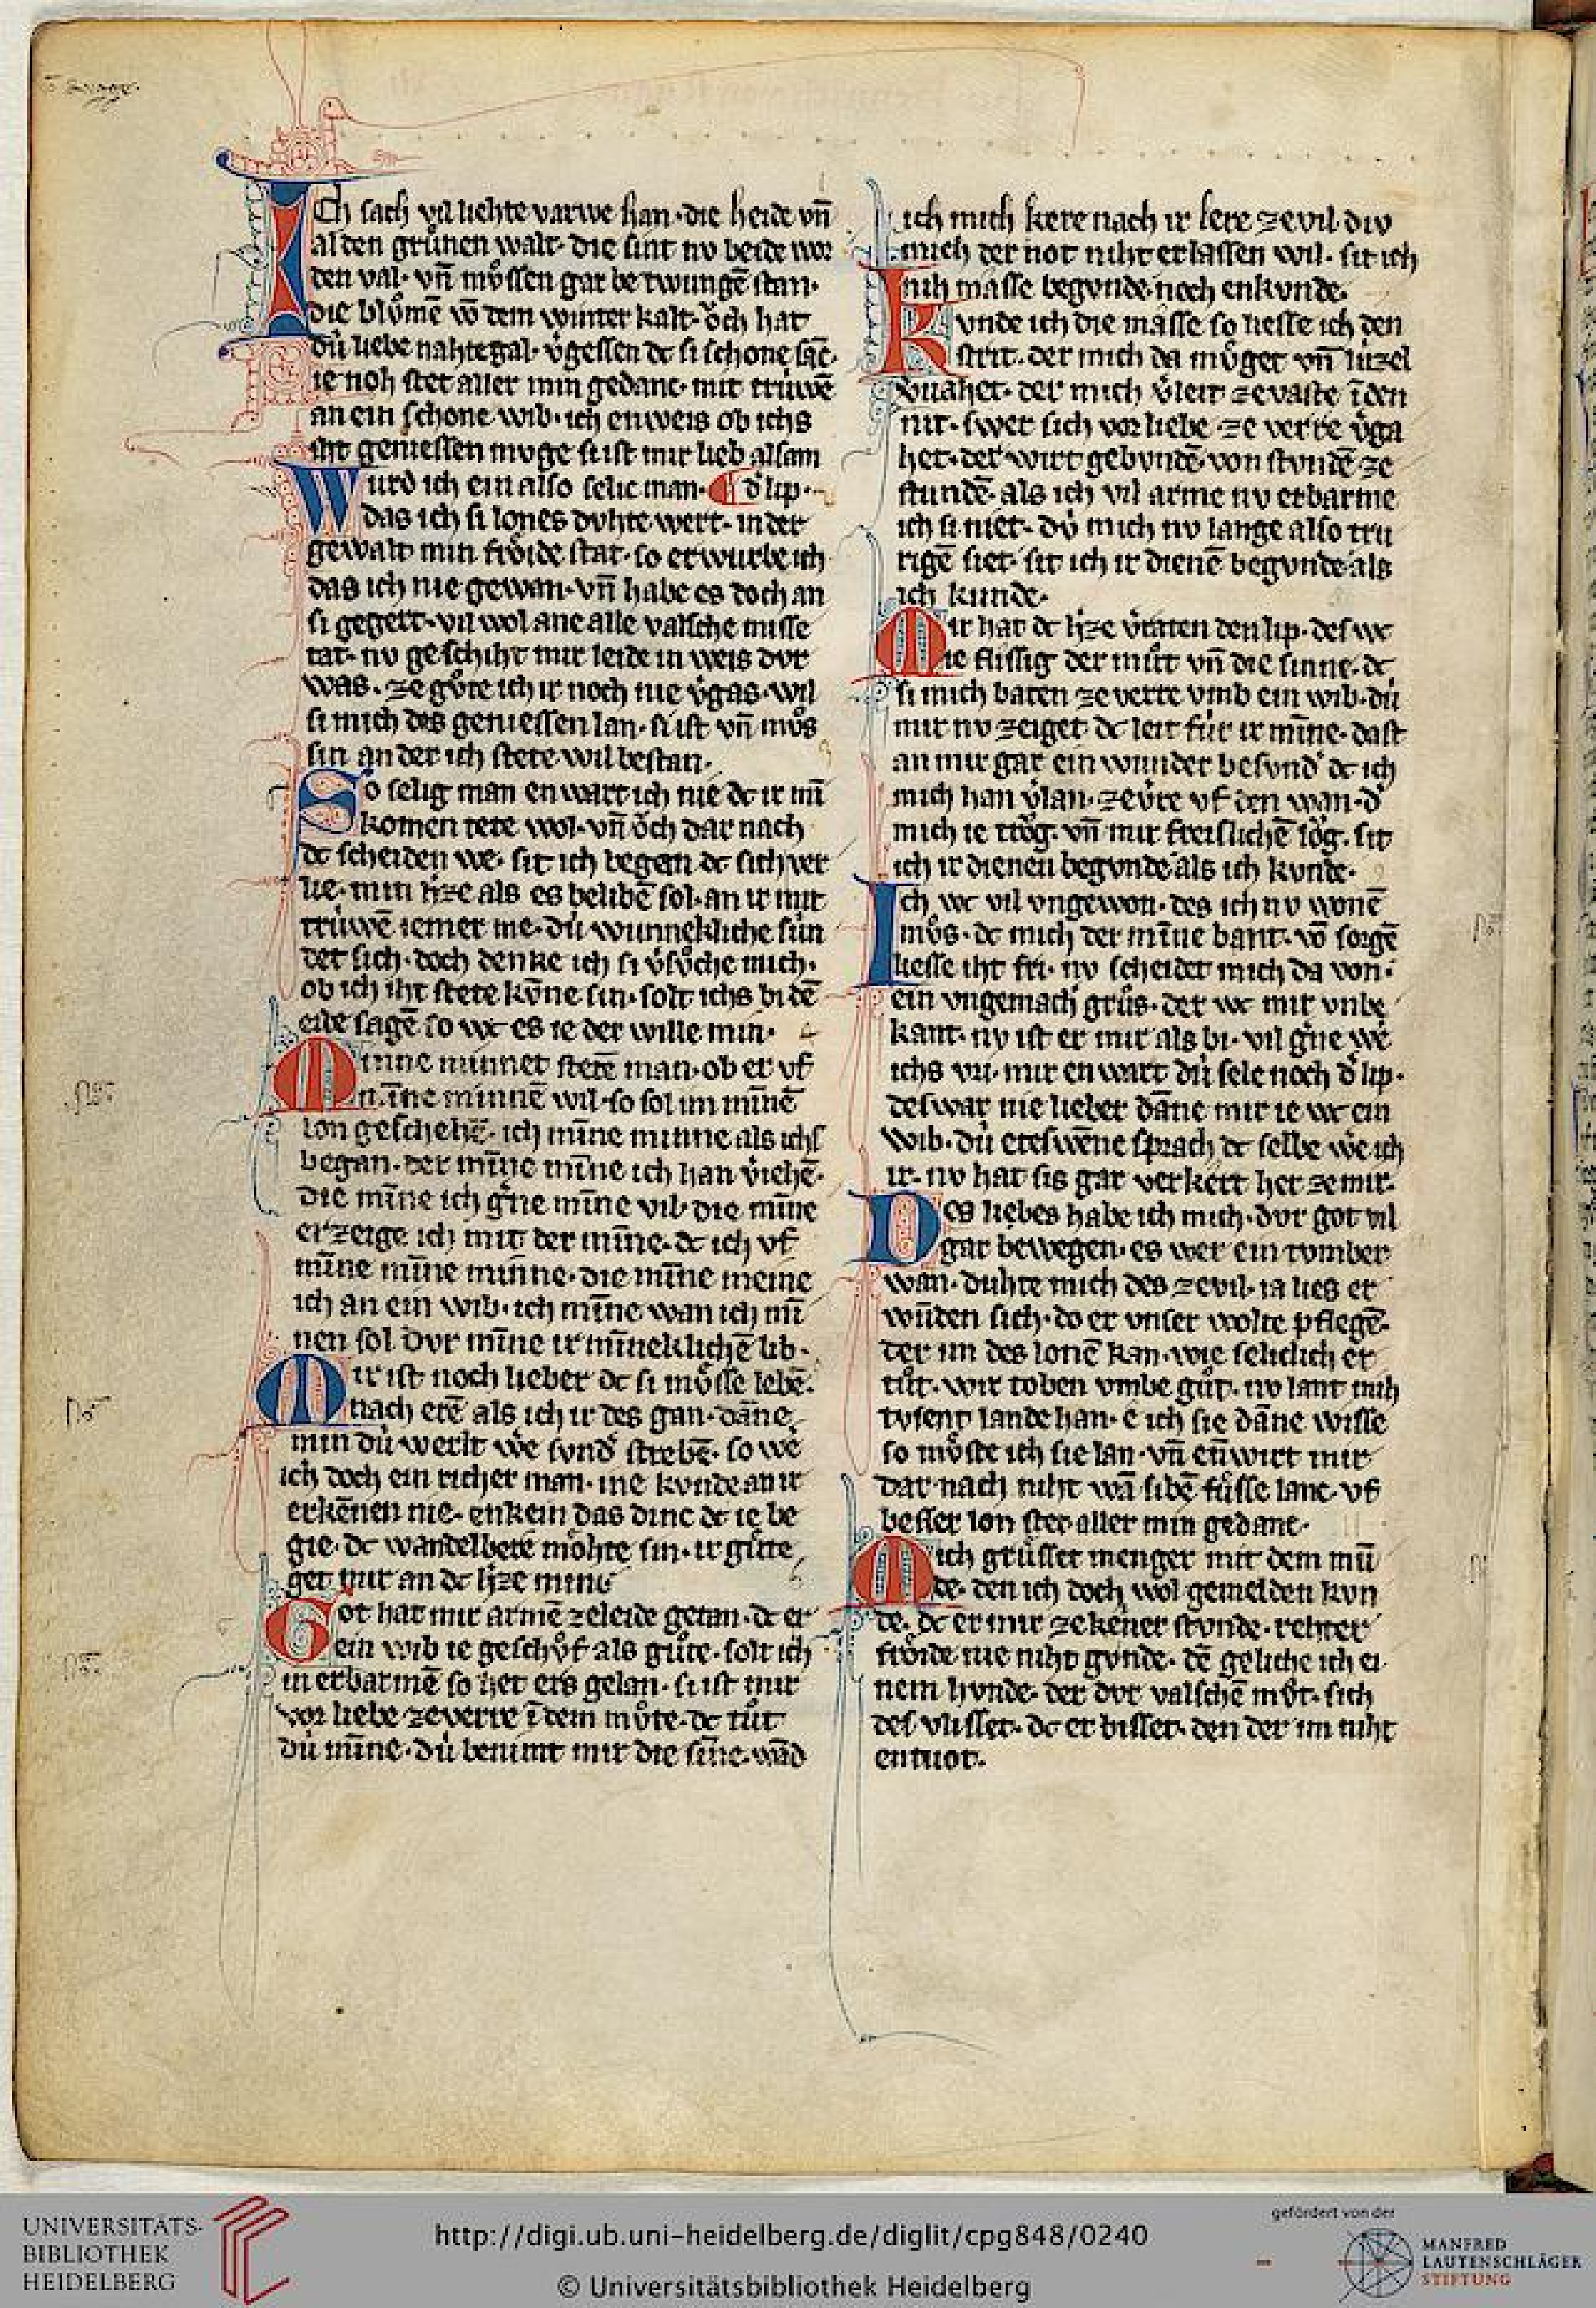 ICh sach vil liehte varwe han · die heide vn̄
al den grůnen walt · die sint nv beide wor
den val · vn̄ můssen gar betwungē stan ·
die blůmē vō dem winter kalt · ǒch hat
dú liebe nahtegal · v̓gessen dc si schone sāc ·
ie noh stet aller min gedanc · mit trúwē
an ein schone wib · ich enweis ob ichs
iht geniessen muge si ist mir lieb alsam
Wurd ich ein also selic man · d̓ lip ·
das ich si lones duhte wert · in der
gewalt min frǒide stat · so erwurbe ich
das ich nie gewan · vn̄ habe es doch an
si gegert · vn̄ wol ane alle valsche misse
tat · nv geschiht mir leide in weis dvr
was · ze gůte ich ir noch nie v̓gas · wil
si mich des geniessen lan · si ist vn̄ můs
sin an der ich stete wil bestan ·
So selig man enwart ich nie dc ir mī
komen tete wol · vn̄ ǒch dar nach
dc scheiden we · sit ich began dc sich ver
lie · min h̓ze als es belibē sol · an ir mit
trúwē iemer me · dú wunnekliche sún
det sich · doch denke ich si v̓sůche mich ·
ob ich iht stete kōne sin · solt ichs bi dē
eide sagē so wc es ie der wille min ·
Minne minnet stetē man · ob er vf
mīne minnē wil · so sol im mīnē
lon geschehē · ich mīne minne als ichs
began · der mīne mīne ich han v̓iehē ·
die mīne ich g̓ne mīne vil · die mīne
erzeige ich mit der mīne · dc ich vf
mīne mīne minne · die mīne meine
ich an ein wib · ich mīne wan ich mī
nen sol dvr mīne ir mīneklichē lib ·
Mir ist noch lieber dc si můsse lebē ·
nach erē als ich ir des gan · dāne
min dú werlt wē sund̓ strebē · so we
ich doch ein richer man · ine kvnde an ir
erkēnen nie · enkein das dinc dc ie be
gie · dc wandelbere mǒhte sin · ir gůte
get mir an dc h̓ze min ·
Got hat mir armē ze leide getan · dc er
ein wib ie geschůf als gůte · solt ich
in erbarmē so het ers gelan · si ist mir
vor liebe ze verre ī dem můte · dc tůt
dú mīne · dú benimt mir die sīne · wād
ich mich kere nach ir lere ze vil · div
mich der not niht erlassen wil · sit ich
nih masse begvnde noch enkvnde ·
Kvnde ich die masse so liesse ich den
strit · der mich da můget vn̄ lúzel
vuahet · der mich v̓leit ze vaste ī den
nit · swer sich vor liebe ze verre v̓ga
het · der wirt gebvndē von stvndē ze
stundē als ich vil arme nv erbarme
ich si niet · dú mich nv lange also tru
rigē siet · sit ich ir dienē begvnde als
ich kunde ·
Mir hat dc h̓ze v̓raten den lip · des wc
ie flissig der můt vn̄ die sinne · dc
si mich baten ze verre vmb ein wib · dú
mir nv zeiget dc leit fúr ir mīne · dast
an mir gar ein wunder besvnd̓ dc ich
mich han v̓lan · ze v̓re vf den wan · d̓
mich ie trǒg · vn̄ mir freislichē lǒg · sit
ich ir dienen begvnde als ich kvnde ·
Ich wc vil vngewon · des ich nv wonē
můs · dc mich der mīne bant · vō sorgē
liesse iht fri · nv scheidet mich da von ·
ein vngemach grůs · der wc mir vnbe
kant · nv ist er mir als bi · vil g̓ne we
ichs vri · mir enwart dú sele noch d̓ lip ·
deswar nie lieber dāne mir ie wc ein
wib · dú eteswēne sprach dc selbe wē ich
ir · nv hat sis gar verkert her ze mir ·
Des liebes habe ich mich · dvr got vil
gar bewegen · es wer ein tvmber
wan · duhte mich des ze vil · ia lies er
wūden sich · do er vnser wolte pflegē ·
der im des lonē kan · wie seliclich er
tůt · wir toben vmbe gůt · nv lant mih
tvsent lande han · e ich sie dāne wisse
so můste ich sie lan · vn̄ en̄wirt mir
dar nach niht wā sibē fůsse lanc · vf
besser lon stet aller min gedanc ·
Mich grússet menger mit dem mū
de · den ich doch wol gemelden kvn
de · dc er mir ze kener stvnde · rehter
frǒide nie niht gvnde · dē geliche ich ei
nem hvnde · der dvr valschē můt · sich
des vlisset · dc er bisset · den der im niht
entuot ·
UNIVERSITÄTS-
BIBLIOTHEK
HEIDELBERG
http://digi.ub.uni-heidelberg.de/diglit/cpg848/0240
© Universitätsbibliothek Heidelberg
gefördert von der
MANFRED
LAUTENSCHLÄGER
STIFTUNG